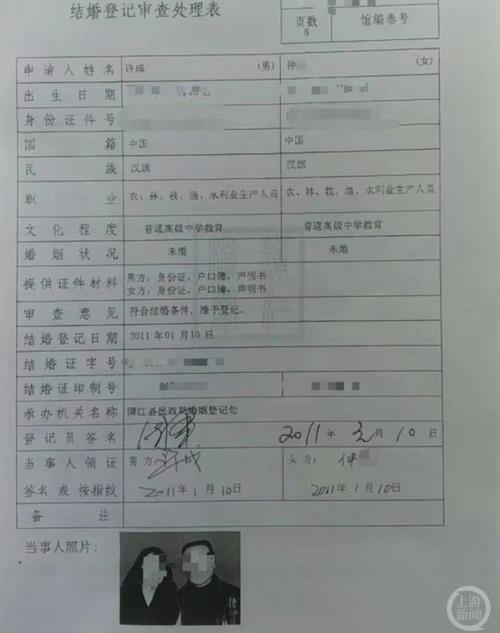 结婚登记审查处理表
页数 馆编卷号
6
申请人姓名 许成 (男) 仲 (女)
出生日期
身份证件号
国籍 中国 中国
民族 汉族 汉族
职业 农、林、牧、渔、水利业生产人员 农、林、牧、渔、水利业生产人员
文化程度 普通高级中学教育 普通高级中学教育
婚姻状况 未婚 未婚
提供证件材料 男方：身份证、户口簿、声明书
女方：身份证、户口簿、声明书
审查意见 符合结婚条件，准予登记。
结婚登记日期 2011年01月10日
结婚证字号
结婚证印制号
承办机关名称 蒲江县民政局婚姻登记处
登记员签名 2011年元月10日
当事人领证 男方： 许成 女方： 仲
签名或按指纹 2011年1月10日 2011年1月10日
备注
当事人照片：
上游新闻